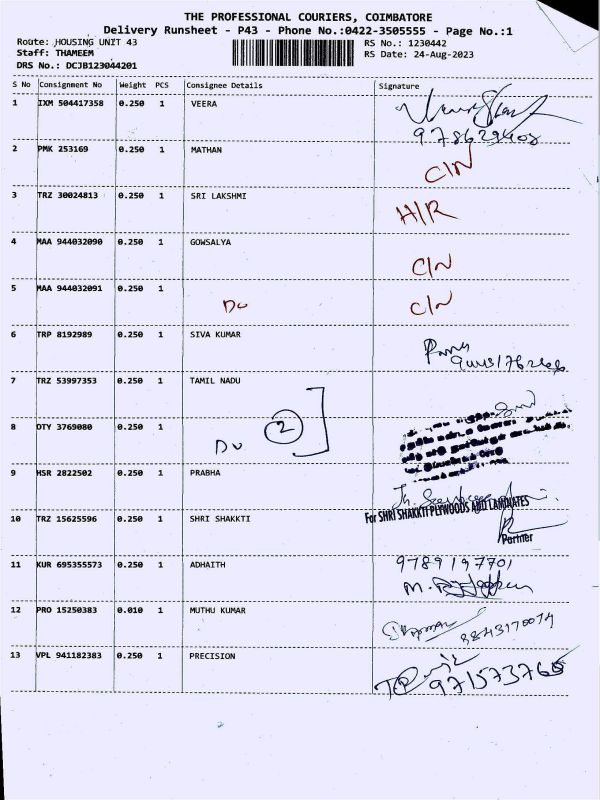 THE PROFESSIONAL COURIERS, COIMBATORE
Delivery Runsheet - P43 - Phone No.:0422-3505555 - Page No.:1
Route: HOUSING UNIT 43 RS No.: 1230442
Staff: THAMEEM RS Date: 24-Aug-2023
DRS No.: DCJB123044201
S No Consignment No Weight PCS Consignee Details Signature
1 IXM 504417358 0.250 1 VEERA
2 PMK 253169 0.250 1 MATHAN C/N
3 TRZ 30024813 0.250 1 SRI LAKSHMI H/R
4 MAA 944032090 0.250 1 GOWSALYA C/N
5 MAA 944032091 0.250 1 Do C/N
6 TRP 8192989 0.250 1 SIVA KUMAR
7 TRZ 53997353 0.250 1 TAMIL NADU
8 DTY 3769080 0.250 1 Do 2
9 HSR 2822502 0.250 1 PRABHA
10 TRZ 15625596 0.250 1 SHRI SHAKKTI For SHRI SHAKKTI PLYWOODS AND LAMINATES
Partner
11 KUR 695355573 0.250 1 ADHAITH 9789197701
12 PRO 15250383 0.010 1 MUTHU KUMAR 9843170074
13 VPL 941182383 0.250 1 PRECISION